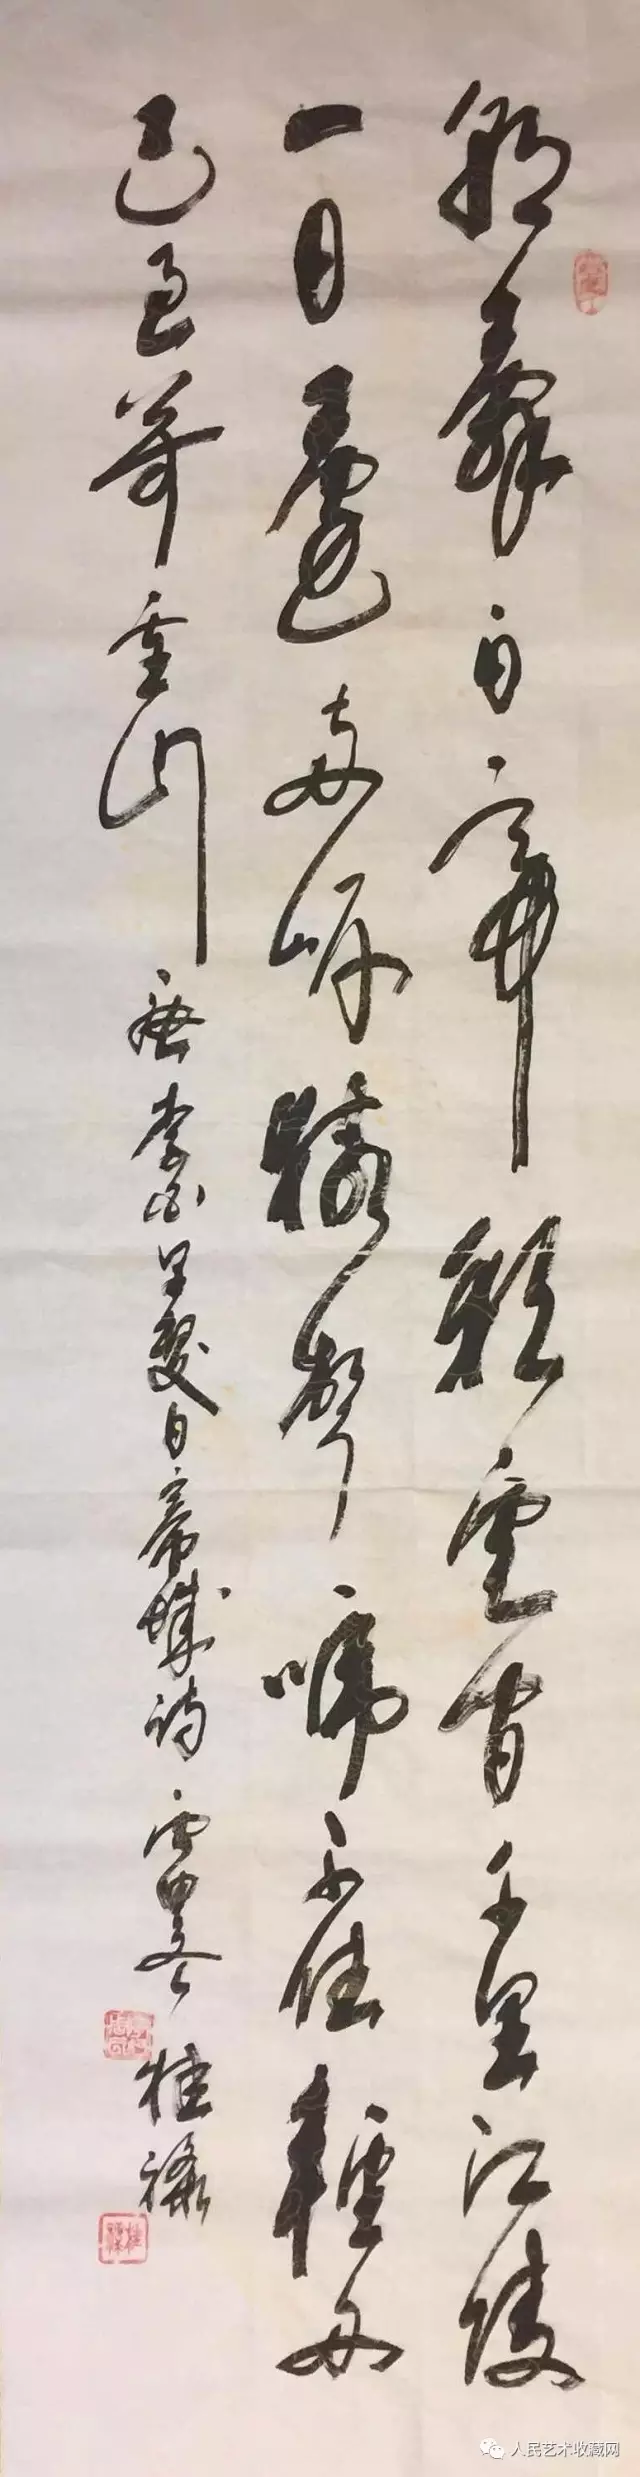 朝辞白帝彩云间千里江陵
一日還两岸猿声啼不住轻舟
已过万重山 唐李白早發白帝城诗 桂禄
人民艺术收藏网